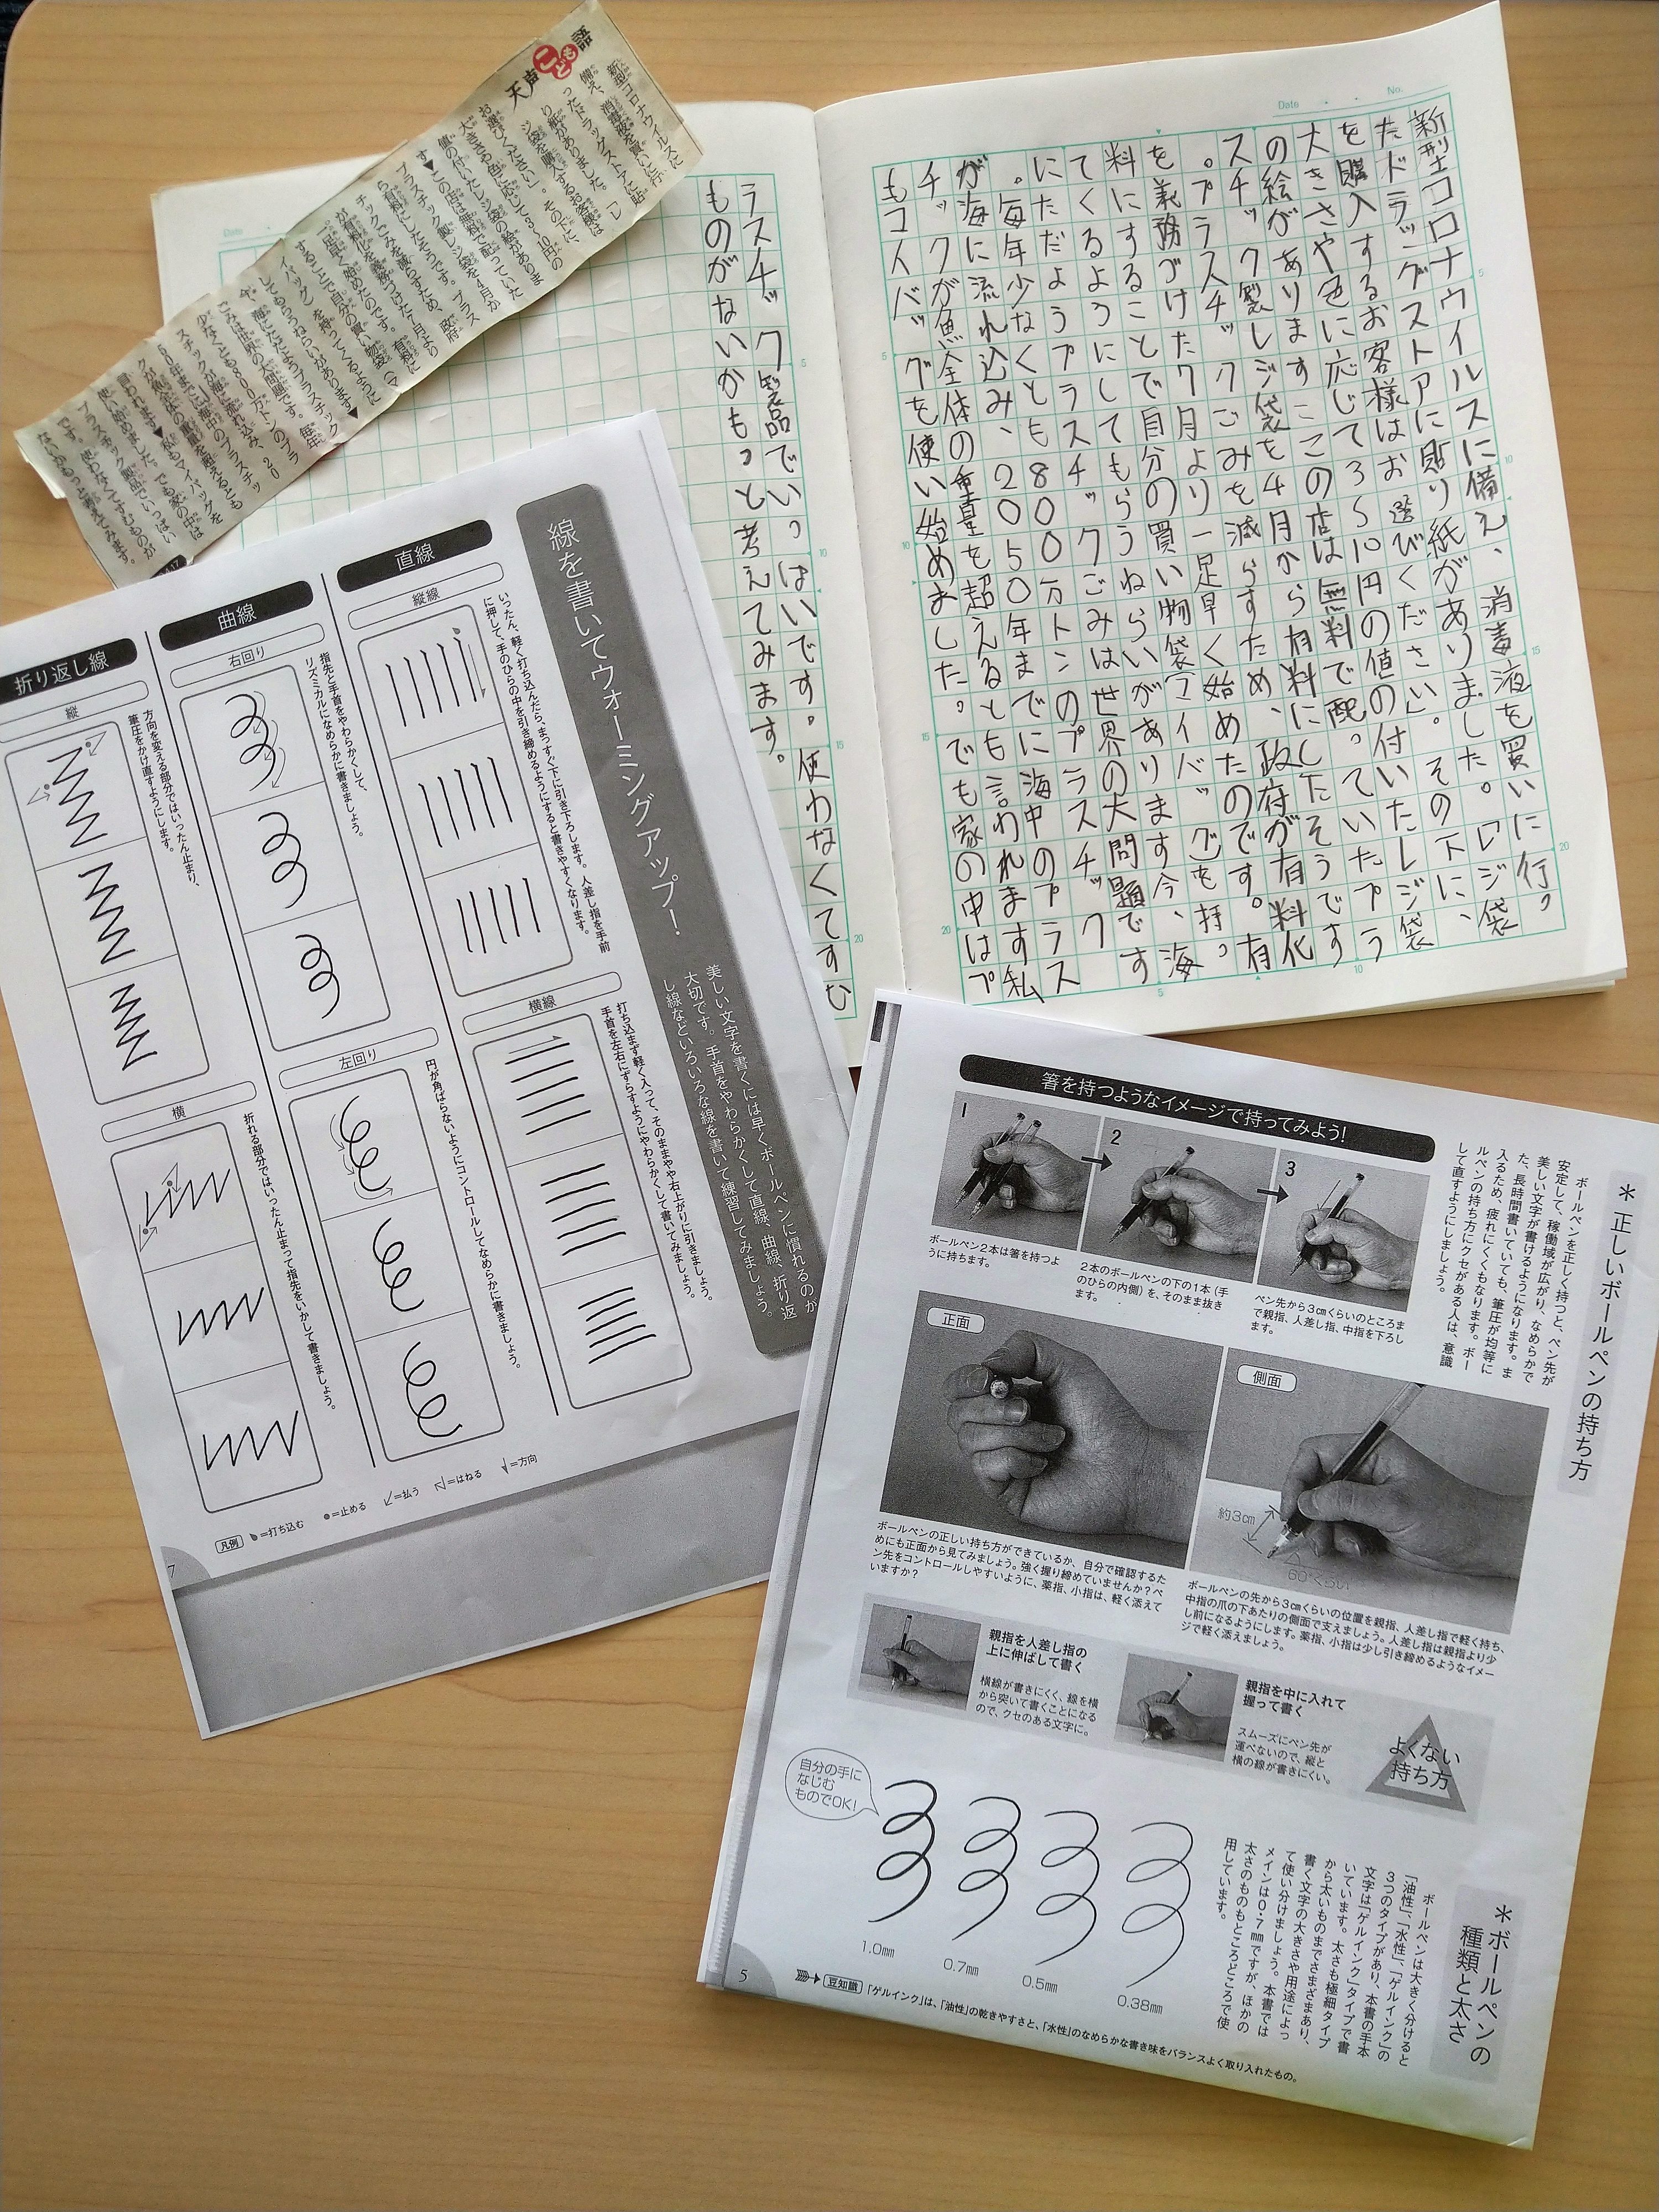 天声こども語
新型コロナウイルスに
備え、消毒液を買いに行
ったドラッグストアに貼
り紙がありました。「レ
ジ袋を購入するお客様は
お選びください」。その下に、
大きさや色に応じて3～10円の
値の付いたレジ袋の絵がありま
す▼この店は無料で配っていた
プラスチック製レジ袋を4月か
ら有料にしたそうです。プラス
チックごみを減らすため、政府
が有料化を義務づけた7月より
一足早く始めたのです。有料に
することで自分の買い物袋（マ
イバッグ）を持ってくるように
してもらうねらいがあります▼
今、海にただようプラスチック
ごみは世界の大問題です。毎年
少なくとも800万トンのプラ
スチックが海に流れ込み、20
50年までに海中のプラスチッ
クが魚全体の重量を超えるとも
言われます▼私もマイバッグを
使い始めました。でも家の中は
プラスチック製品でいっぱい
です。使わなくてすむものが
ないかもっと考えてみます。
Date
No.
新型コロナウイルスに備え、消毒液を買いに行っ
たドラッグストアに貼り紙がありました。「レジ袋
を購入するお客様はお選びください」。その下に、
大きさや色に応じて3～10円の値の付いたレジ袋
の絵がありますこの店は無料で配っていたプラ
スチック製レジ袋を4月から有料にしたそうです
。プラスチックごみを減らすため、政府が有料化
を義務づけた7月より一足早く始めたのです。有
料にすることで自分の買い物袋（マイバッグ）を持っ
てくるようにしてもらうねらいがあります今、海
にただようプラスチックごみは世界の大問題です
。毎年少なくとも800万トンのプラスチック
が海に流れ込み、2050年までに海中のプラス
チックが魚全体の重量を超えるとも言われます私
もマイバッグを使い始めました。でも家の中はプ
ラスチック製品でいっぱいです。使わなくてすむ
ものがないかもっと考えてみます。
Date
線を書いてウォーミングアップ!
美しい文字を書くには早くボールペンに慣れるのが
大切です。手首をやわらかくして直線、曲線、折り返
し線などいろいろな線を書いて練習してみましょう。
直線
縦線
いったん、軽く打ち込んだら、まっすぐ下に引き下ろします。人差し指を手前
に押して、手のひらの中を引き締めるようにすると書きやすくなります。
横線
打ち込まず軽く入って、そのままやや右上がりに引きましょう。
手首を左右にずらすようにやわらかくして書いてみましょう。
曲線
右回り
指先と手首をやわらかくして、
リズミカルになめらかに書きましょう。
左回り
円が角ばらないようにコントロールしてなめらかに書きましょう。
折り返し線
縦
方向を変える部分ではいったん止まり、
筆圧をかけ直すようにします。
横
折れる部分ではいったん止まって指先をいかして書きましょう。
凡例 =打ち込む =止める =払う =はねる =方向
7
＊正しいボールペンの持ち方
ボールペンを正しく持つと、ペン先が
安定して、稼働域が広がり、なめらかで
美しい文字が書けるようになります。ま
た、長時間書いていても、筆圧が均等に
入るため、疲れにくくもなります。ボー
ルペンの持ち方にクセがある人は、意識
して直すようにしましょう。
箸を持つようなイメージで持ってみよう!
1
ボールペン2本は箸を持つよ
うに持ちます。
2
2本のボールペンの下の1本（手
のひらの内側）を、そのまま抜き
ます。
3
ペン先から3cmくらいのところま
で親指、人差し指、中指を下ろし
ます。
正面
ボールペンの正しい持ち方ができているか、自分で確認するた
めにも正面から見てみましょう。強く握り締めていませんか？ペ
ン先をコントロールしやすいように、薬指、小指は、軽く添えて
いますか？
側面
約3cm
60°くらい
ボールペンの先から3cmくらいの位置を親指、人差し指で軽く持ち、
中指の爪の下あたりの側面で支えましょう。人差し指は親指より少
し前になるようにします。薬指、小指は少し引き締めるようなイメー
ジで軽く添えましょう。
親指を人差し指の
上に伸ばして書く
横線が書きにくく、線を横
から突いて書くことになる
ので、クセのある文字に。
親指を中に入れて
握って書く
スムーズにペン先が
運べないので、縦と
横の線が書きにくい。
よくない
持ち方
＊ボールペンの
種類と太さ
ボールペンは大きく分けると
「油性」、「水性」、「ゲルインク」の
3つのタイプがあり、本書の手本
文字は「ゲルインク」タイプで書
いています。太さも極細タイプ
から太いものまでさまざまあり、
書く文字の大きさや用途によっ
て使い分けましょう。本書では
メインは0.7㎜ですが、ほかの
太さのものもところどころで使
用しています。
自分の手に
なじむ
ものでOK!
1.0㎜
0.7㎜
0.5㎜
0.38㎜
豆知識 「ゲルインク」は、「油性」の乾きやすさと、「水性」のなめらかな書き味をバランスよく取り入れたもの。
5